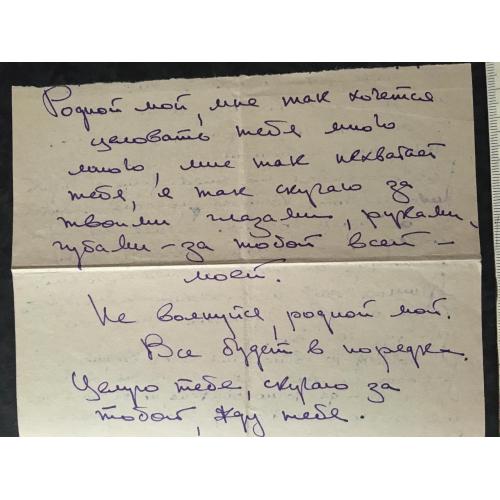 Родной мой, мне так хочется
целовать тебя много
много, мне так нехватает
тебя, я так скучаю за
твоими глазами, руками,
губами – за тобой всей –
моей.
Не волнуйся, родной мой.
Все будет в порядке.
Целую тебя, скучаю за
тобой, жду тебя.